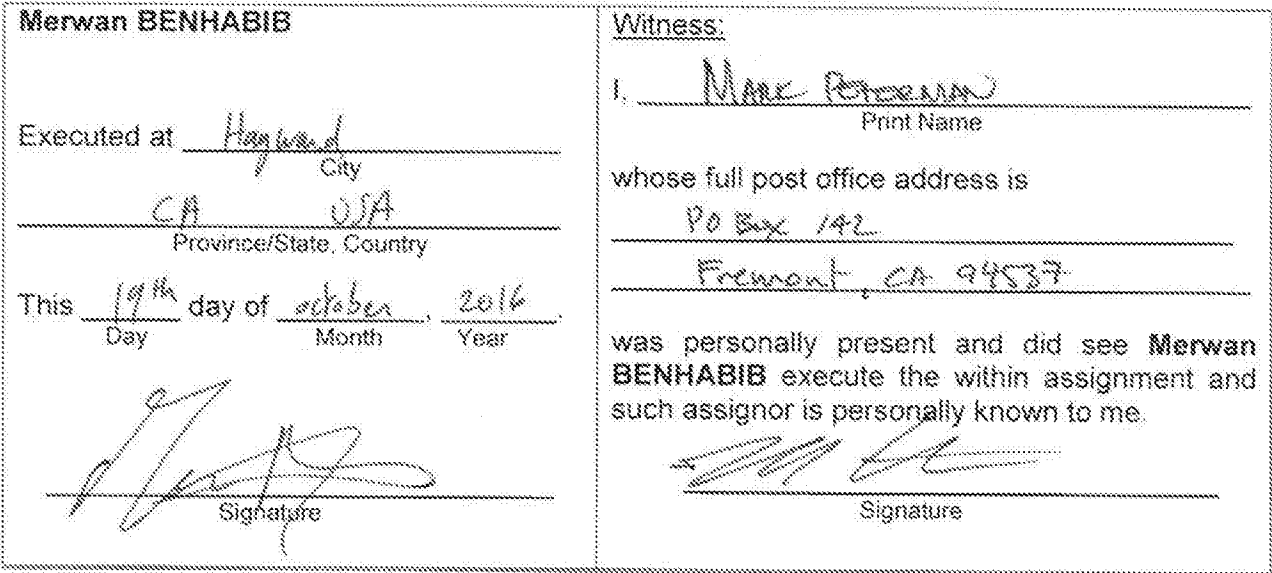 Merwan BENHABIB
Executed at Hayward
City
CA USA
Province/State, Country
This 19th day of october, 2016.
Day Month Year
Signature
Witness:
I, MARK PETERMAN
Print Name
whose full post office address is
PO Box 142
Fremont, CA 94537
was personally present and did see Merwan
BENHABIB execute the within assignment and
such assignor is personally known to me.
Signature